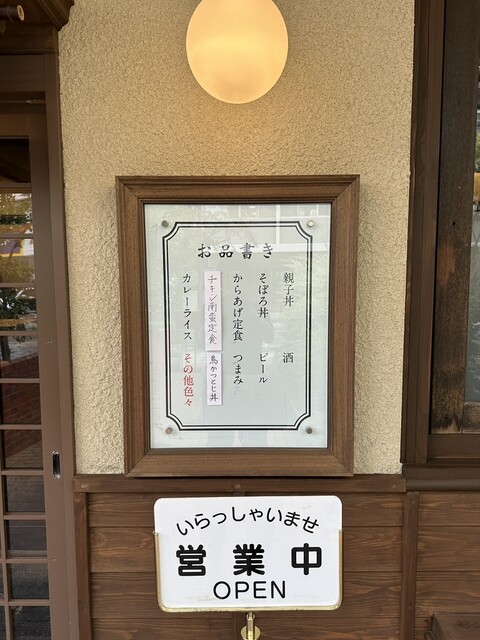 お品書き
親子丼　酒
そぼろ丼　ビール
からあげ定食　つまみ
チキン南蛮定食　鳥かつとじ丼
カレーライス　その他色々
いらっしゃいませ
営業中
OPEN